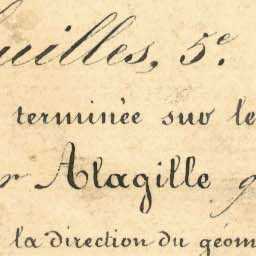 uilles, 5e.
terminée sur le
r Alagille g
la direction du géom